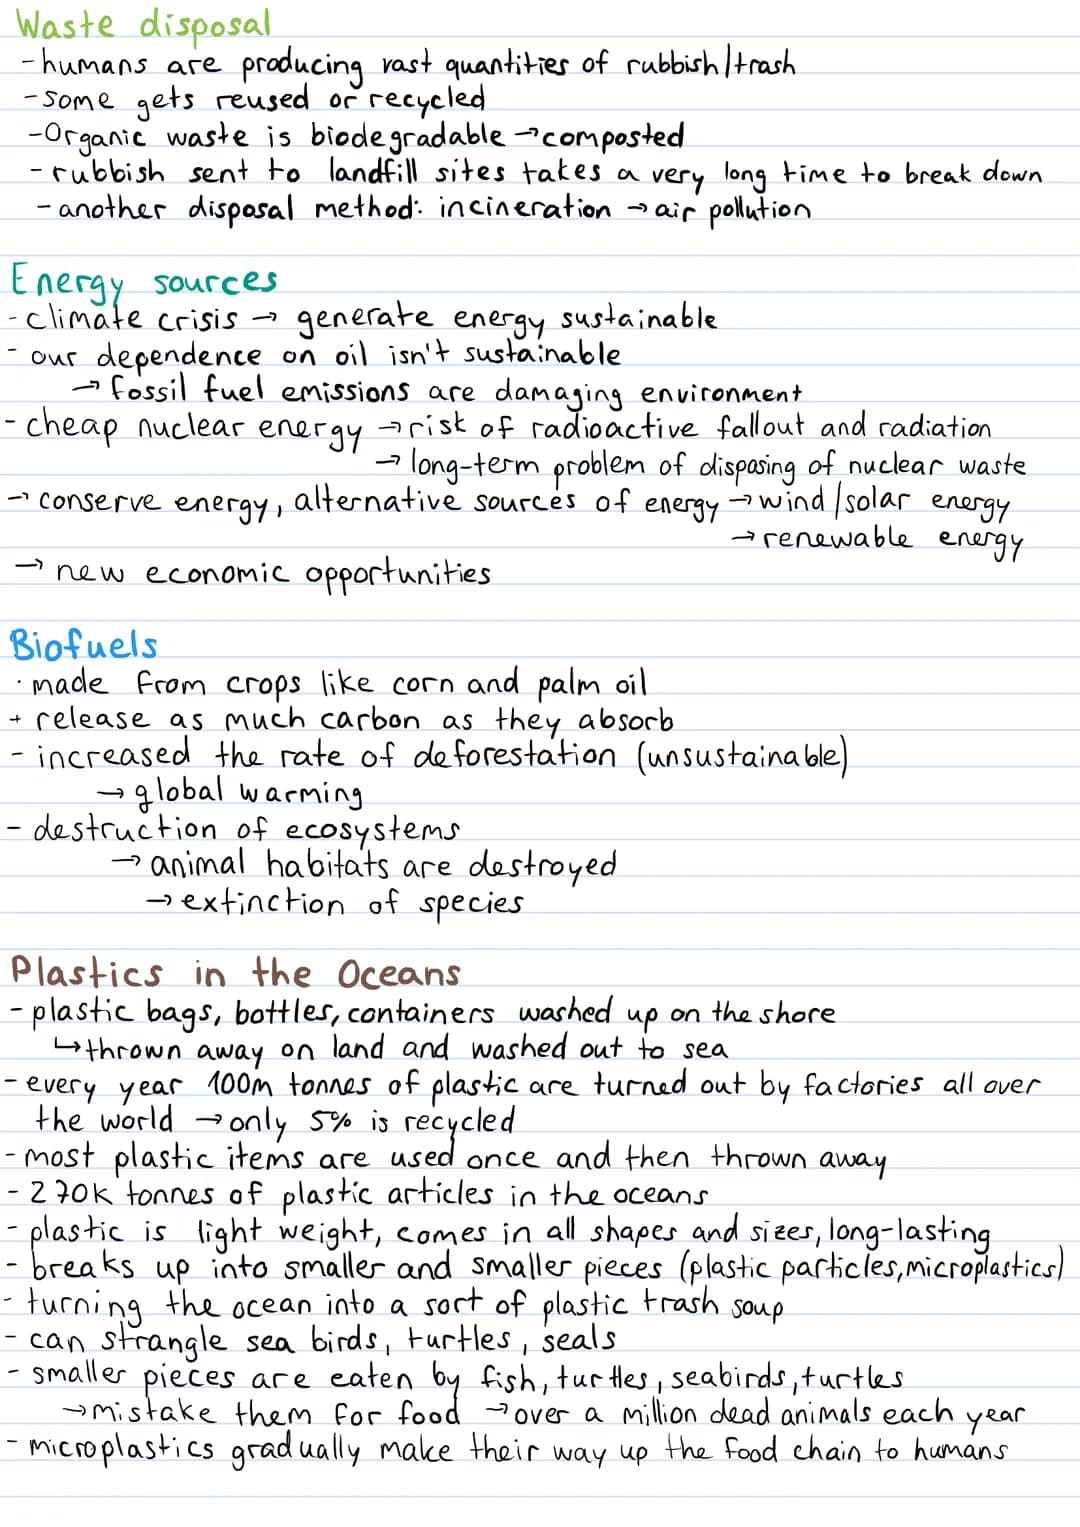 Waste disposal
- humans are producing vast quantities of rubbish/trash
- some gets reused or recycled
- Organic waste is biodegradable → composted
- rubbish sent to landfill sites takes a very long time to break down
- another disposal method: incineration → air pollution
Energy sources
- climate crisis → generate energy sustainable
- our dependence on oil isn't sustainable
→ fossil fuel emissions are damaging environment
- cheap nuclear energy → risk of radioactive fallout and radiation
→ long-term problem of disposing of nuclear waste
→ conserve energy, alternative sources of energy → wind/solar energy
→ renewable energy
→ new economic opportunities
Biofuels
· made from crops like corn and palm oil
+ release as much carbon as they absorb
- increased the rate of deforestation (unsustainable)
→ global warming
- destruction of ecosystems
→ animal habitats are destroyed
→ extinction of species
Plastics in the Oceans
- plastic bags, bottles, containers washed up on the shore
↳ thrown away on land and washed out to sea
- every year 100m tonnes of plastic are turned out by factories all over
the world → only 5% is recycled
- most plastic items are used once and then thrown away
- 270K tonnes of plastic articles in the oceans
- plastic is light weight, comes in all shapes and sizes, long-lasting
- breaks up into smaller and smaller pieces (plastic particles, microplastics)
- turning the ocean into a sort of plastic trash soup
- can strangle sea birds, turtles, seals
- smaller pieces are eaten by fish, turtles, seabirds, turtles
→ mistake them for food → over a million dead animals each year
- microplastics gradually make their way up the food chain to humans